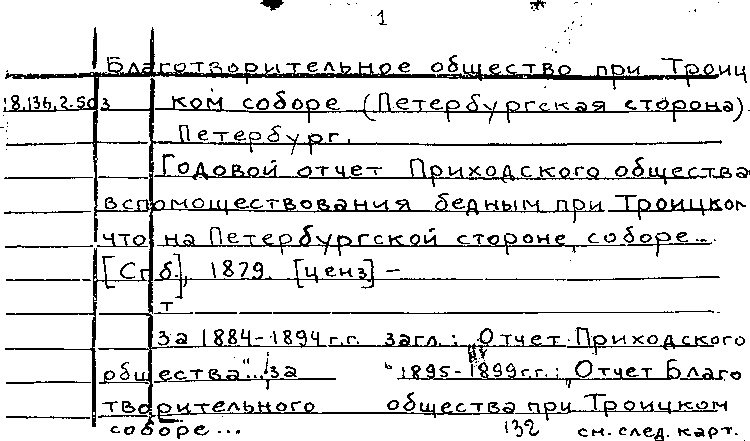 1
Благотворительное общество при Троиц
18.136.2.503 ком соборе (Петербургская сторона).
Петербург.
Годовой отчет Приходского общества
вспомоществования бедным при Троицком
что на Петербургской стороне, соборе...
[Спб.], 1879. [ценз] –
т
за 1884-1894 г.г. загл.: „Отчет Приходского
общества"... за " 1895-1899 гг.: „Отчет Благо
творительного общества при Троицком
соборе... 132 см. след. карт.